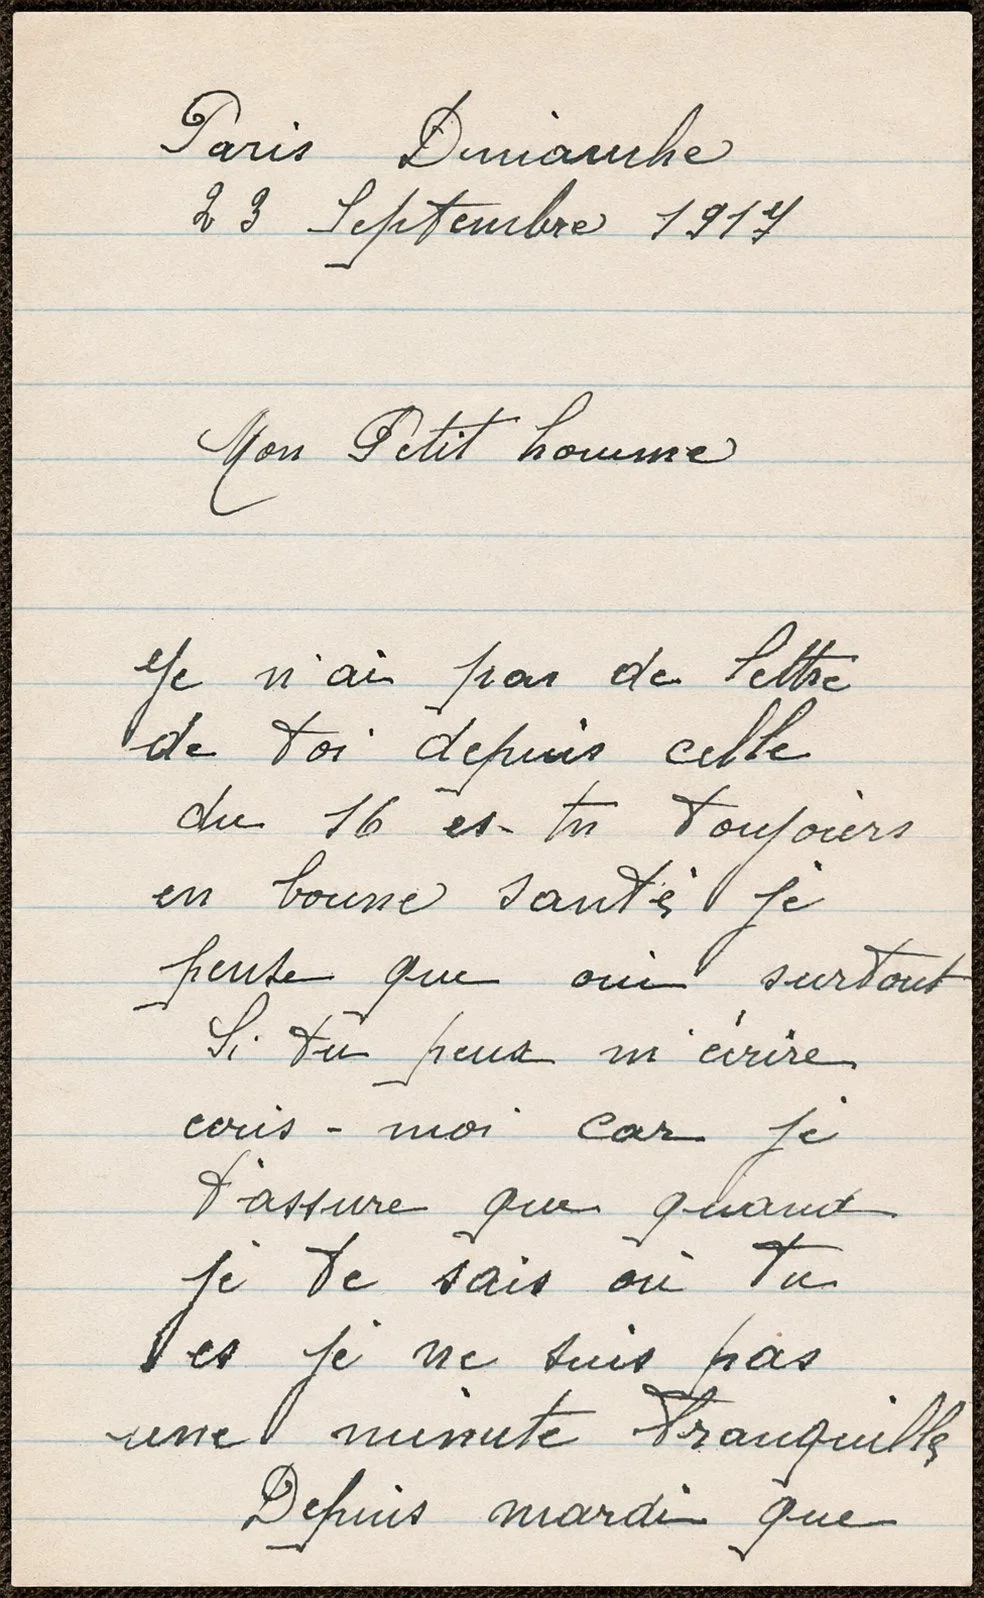 Paris Dimanche
23 Septembre 1917
Mon Petit homme
Je n'ai pas de lettre
de toi depuis celle
du 16 es-tu toujours
en bonne santé, je
pense que oui surtout
Si tu peux m'écrire
ecris-moi car je
t'assure que quand
je te sais où tu
es je ne suis pas
une minute tranquille
Depuis mardi que